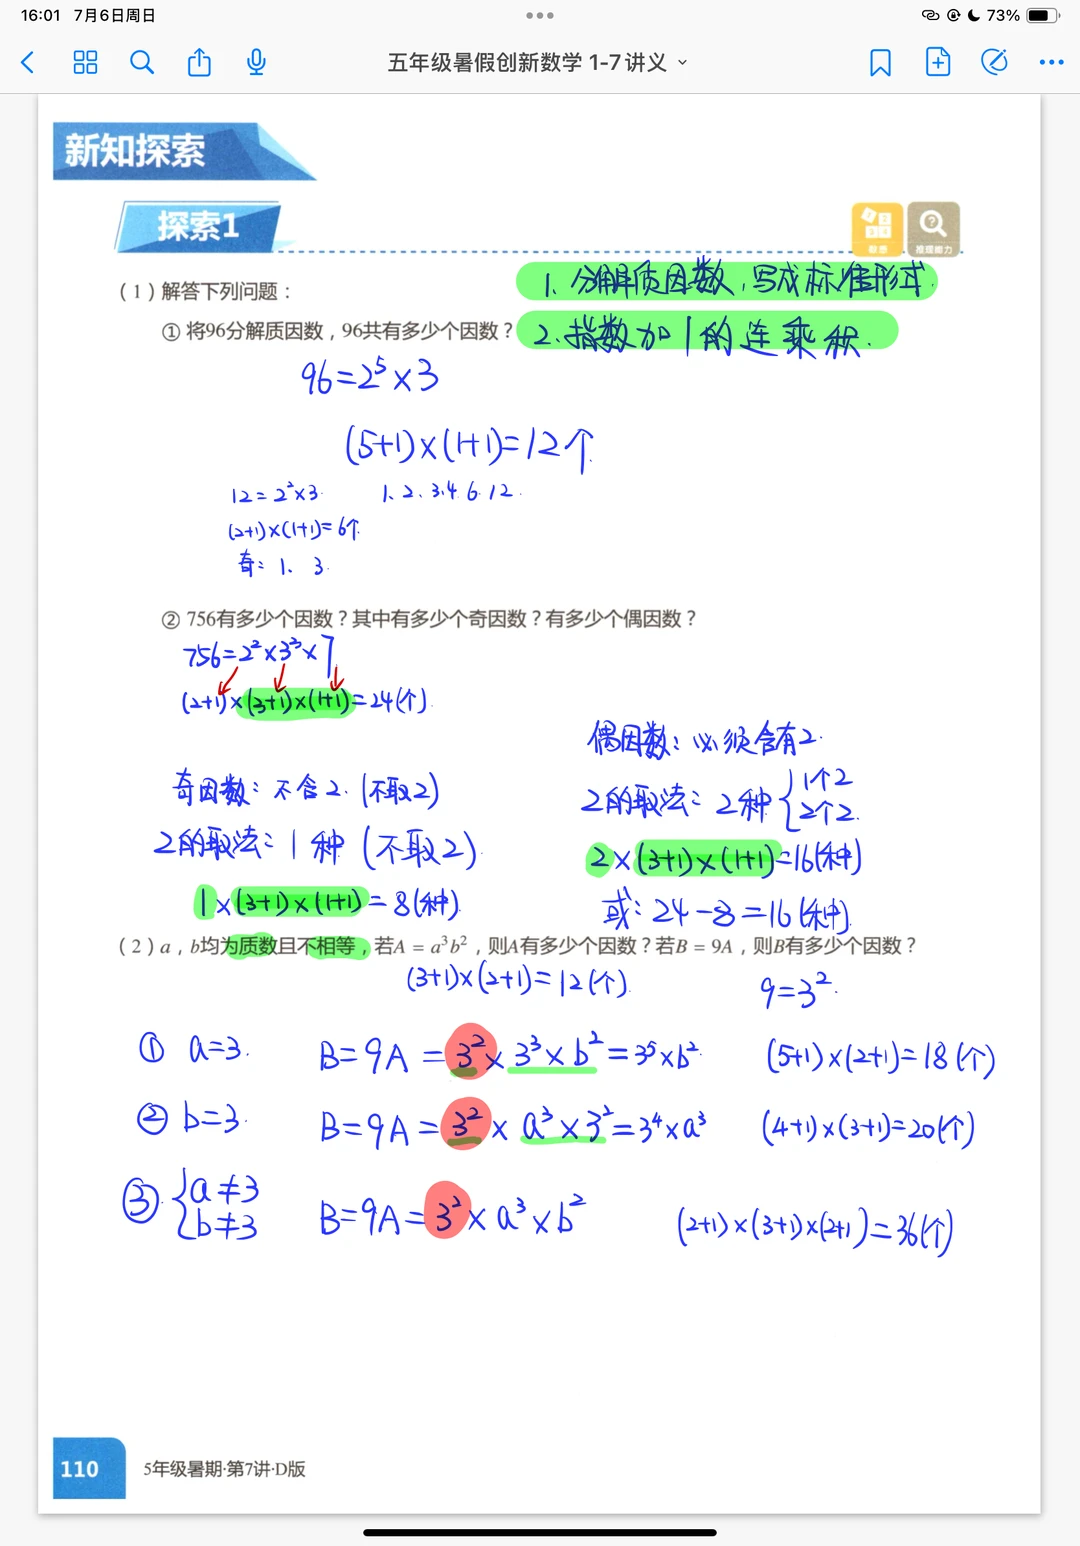 16:01 7月6日周日
73%
五年级暑假创新数学 1-7 讲义
新知探索
探索1
数感
推理能力
1、分解质因数，写成标准形式.
(1) 解答下列问题：
① 将96分解质因数，96共有多少个因数？
2.指数加1的连乘积.
96=2⁵×3
(5+1)×(1+1)=12个.
12=2²×3. 1、2、3.4.6.12.
(2+1)×(1+1)=6个.
奇：1、3.
② 756有多少个因数？其中有多少个奇因数？有多少个偶因数？
756=2²×3³×7
(2+1)×(3+1)×(1+1)=24(个).
偶因数：必须含有2.
奇因数：不含2.(不取2)
2的取法：2种{1个2 2个2.
2的取法：1种(不取2).
2×(3+1)×(1+1)=16(种)
1×(3+1)×(1+1)=8(种).
或：24-8=16(种).
(2) a，b均为质数且不相等，若A = a³b²，则A有多少个因数？若B = 9A，则B有多少个因数？
(3+1)×(2+1)=12(个).
9=3².
① a=3. B=9A=3²×3³×b²=3⁵×b². (5+1)×(2+1)=18(个)
② b=3. B=9A=3²×a³×3²=3⁴×a³ (4+1)×(3+1)=20(个)
③.{a≠3 b≠3 B=9A=3²×a³×b² (2+1)×(3+1)×(2+1)=36(个)
110
5年级暑期·第7讲·D版